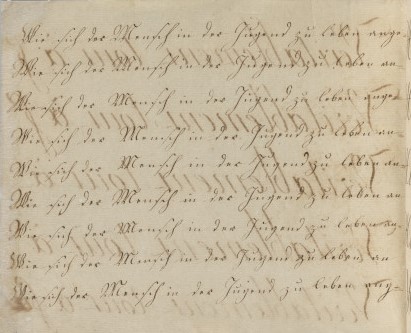 Wie sich der Mensch in der Jugend zu leben ange-
Wie sich der Mensch in der Jugend zu leben an-
Wie sich der Mensch in der Jugend zu leben ange-
Wie sich der Mensch in der Jugend zu leben an-
Wie sich der Mensch in der Jugend zu leben an-
Wie sich der Mensch in der Jugend zu leben an-
Wie sich der Mensch in der Jugend zu leben ang-
Wie sich der Mensch in der Jugend zu leben an
Wie sich der Mensch in der Jugend zu leben ang-